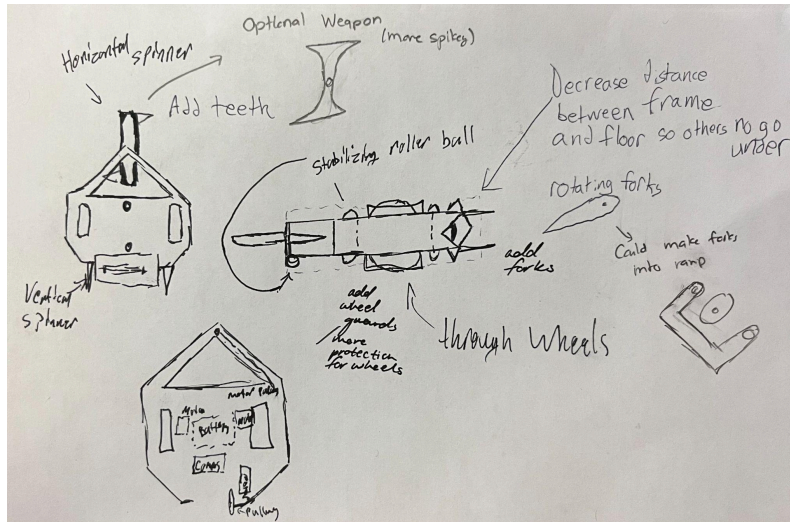 Optional Weapon
(more spikey)
Horizontal spinner
Add teeth
Decrease distance
between frame
and floor so others no go
under
stabilizing roller ball
rotating forks
add
forks
Could make forks
into ramp
Vertical
spinner
add
wheel
guards
more
protection
for wheels
through wheels
motor pulling
Motor
Battery
Comps
pulling